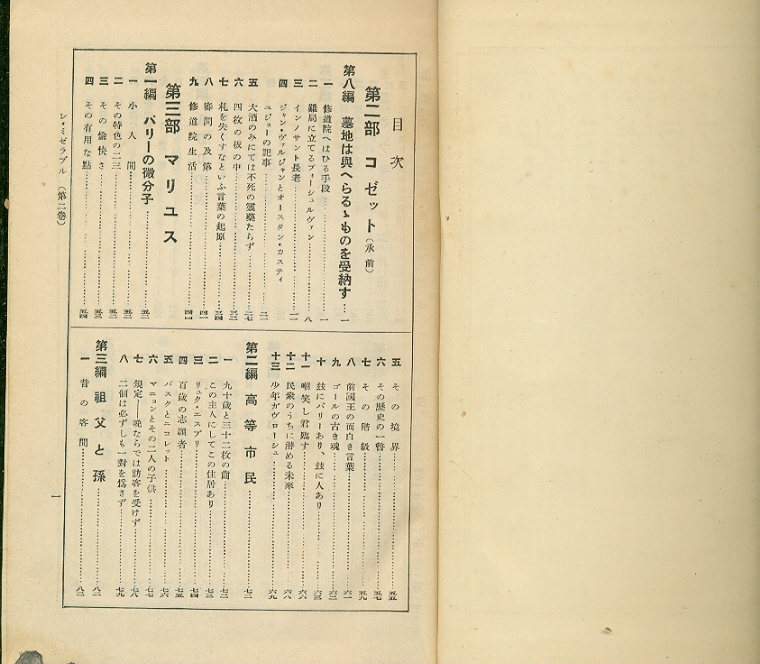 目次
第二部 コゼット(承前)
第八編 墓地は與へらるゝものを受納す……一
一 修道院へはひる手段……一
二 難局に立てるフォーシュルヴァン……八
三 インノサント長老……一一
四 ジャン・ヴァルジャンとオースタン・カスティ
ユジョーの記事……二一
五 大酒のみにては不死の靈藥たらず……二七
六 四枚の板の中……三二
七 札を失くすなといふ言葉の起原……三四
八 審問の及第……四一
九 修道院生活……四四
第三部 マリユス
第一編 パリーの微分子……五一
一 小人間……五一
二 その特色の二三……五二
三 その愉快さ……五三
四 その有用な點……五四
五 その境界……五五
六 その歴史の一瞥……五七
七 その階級……五九
八 前國王の面白き言葉……六一
九 ゴールの古き魂……六二
十 玆にパリーあり、玆に人あり……六三
十一 嘲笑し君臨す……六六
十二 民衆のうちに潜める未來……六八
十三 少年ガヴローシュ……六九
第二編 高等市民……七二
一 九十歳と三十二枚の齒……七二
二 この主人にしてこの住居あり……七三
三 リュク・エスプリ……七四
四 百歳の志願者……七五
五 バスクとニコレット……七六
六 マニョンとその二人の子供……七七
七 規定――晩ならでは訪客を受けず……七八
八 二個は必ずしも一對を爲さず……七九
第三編 祖父と孫……八二
一 昔の客間……八二
レ・ミゼラブル(第二卷)
一